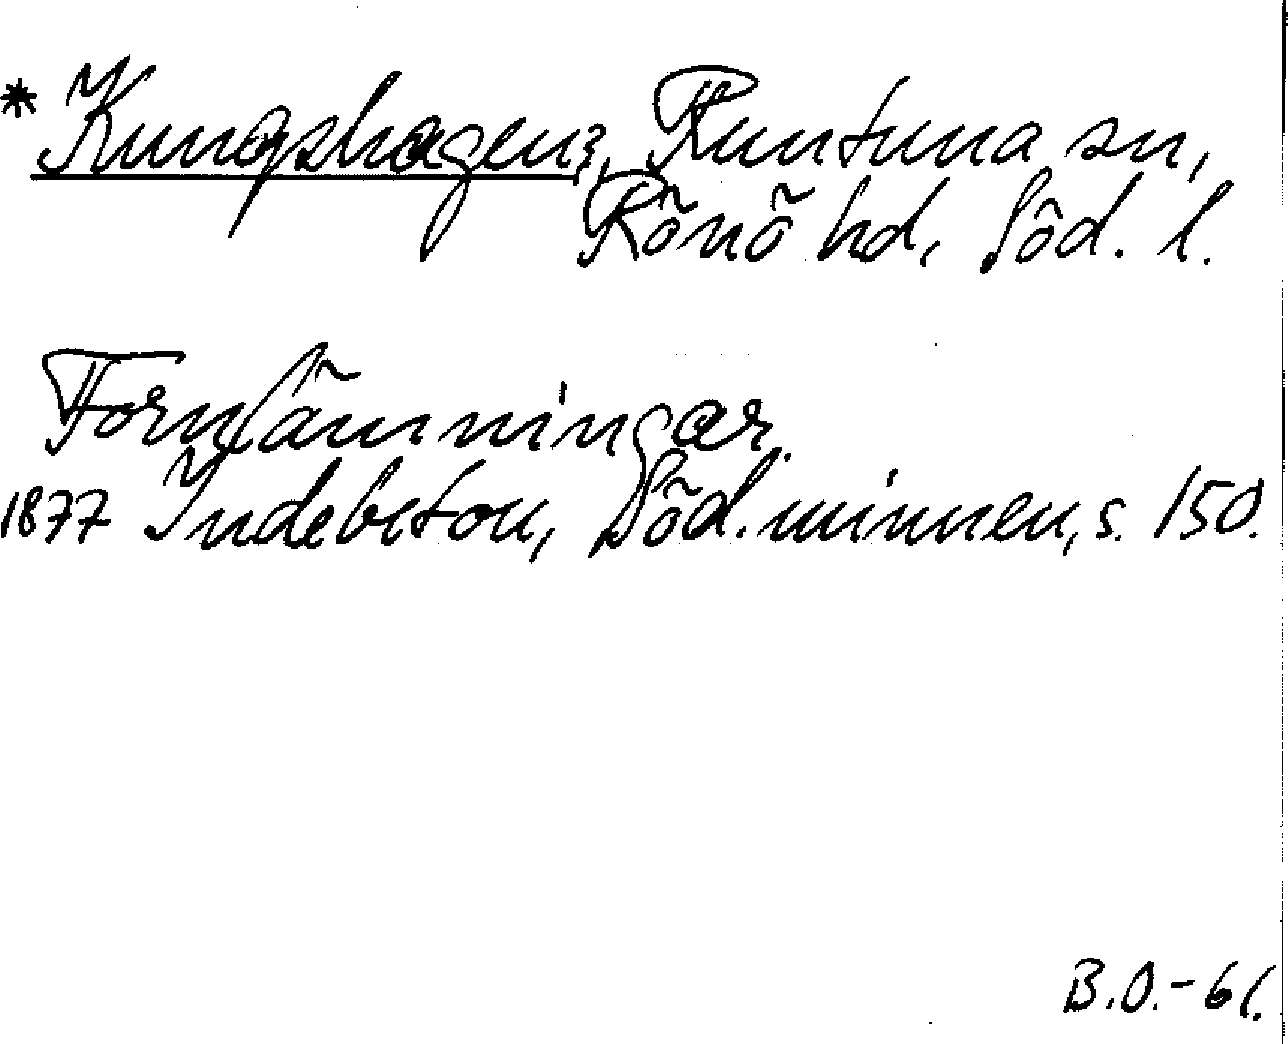 * Kungshagen, Runtuna sn,
Rönö hd, Söd. l.
Fornlämningar.
1877 Indebetou, Söd. minnen, s. 150.
B.O.-61.